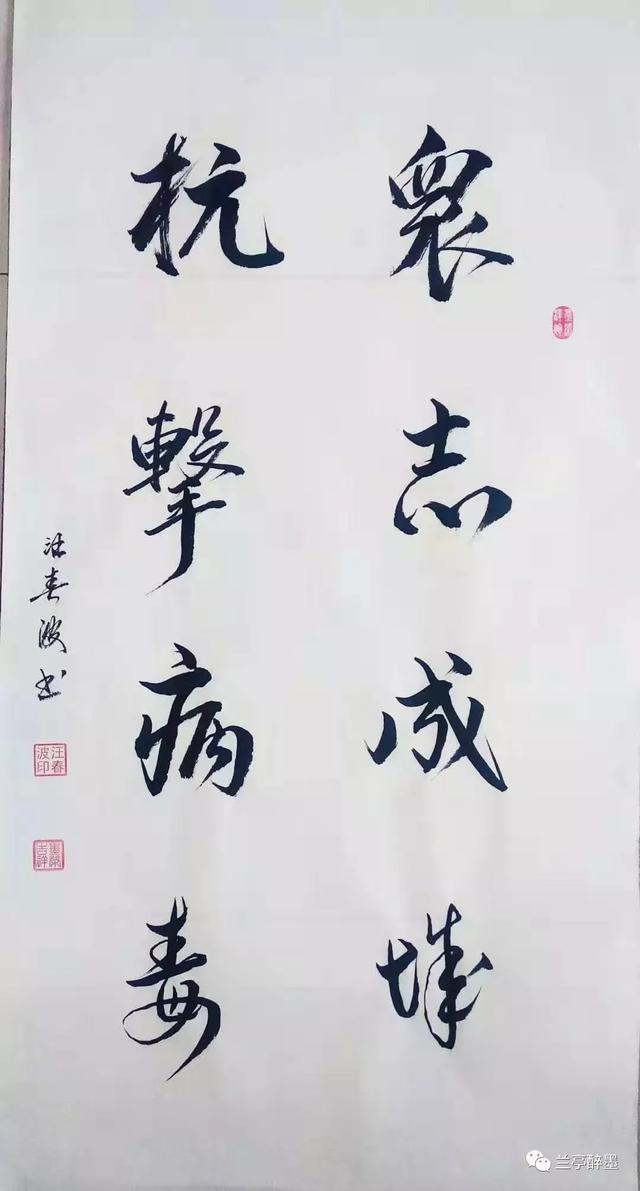 衆志成城
抗擊病毒
汪春波书
汪春波印
兰亭醉墨